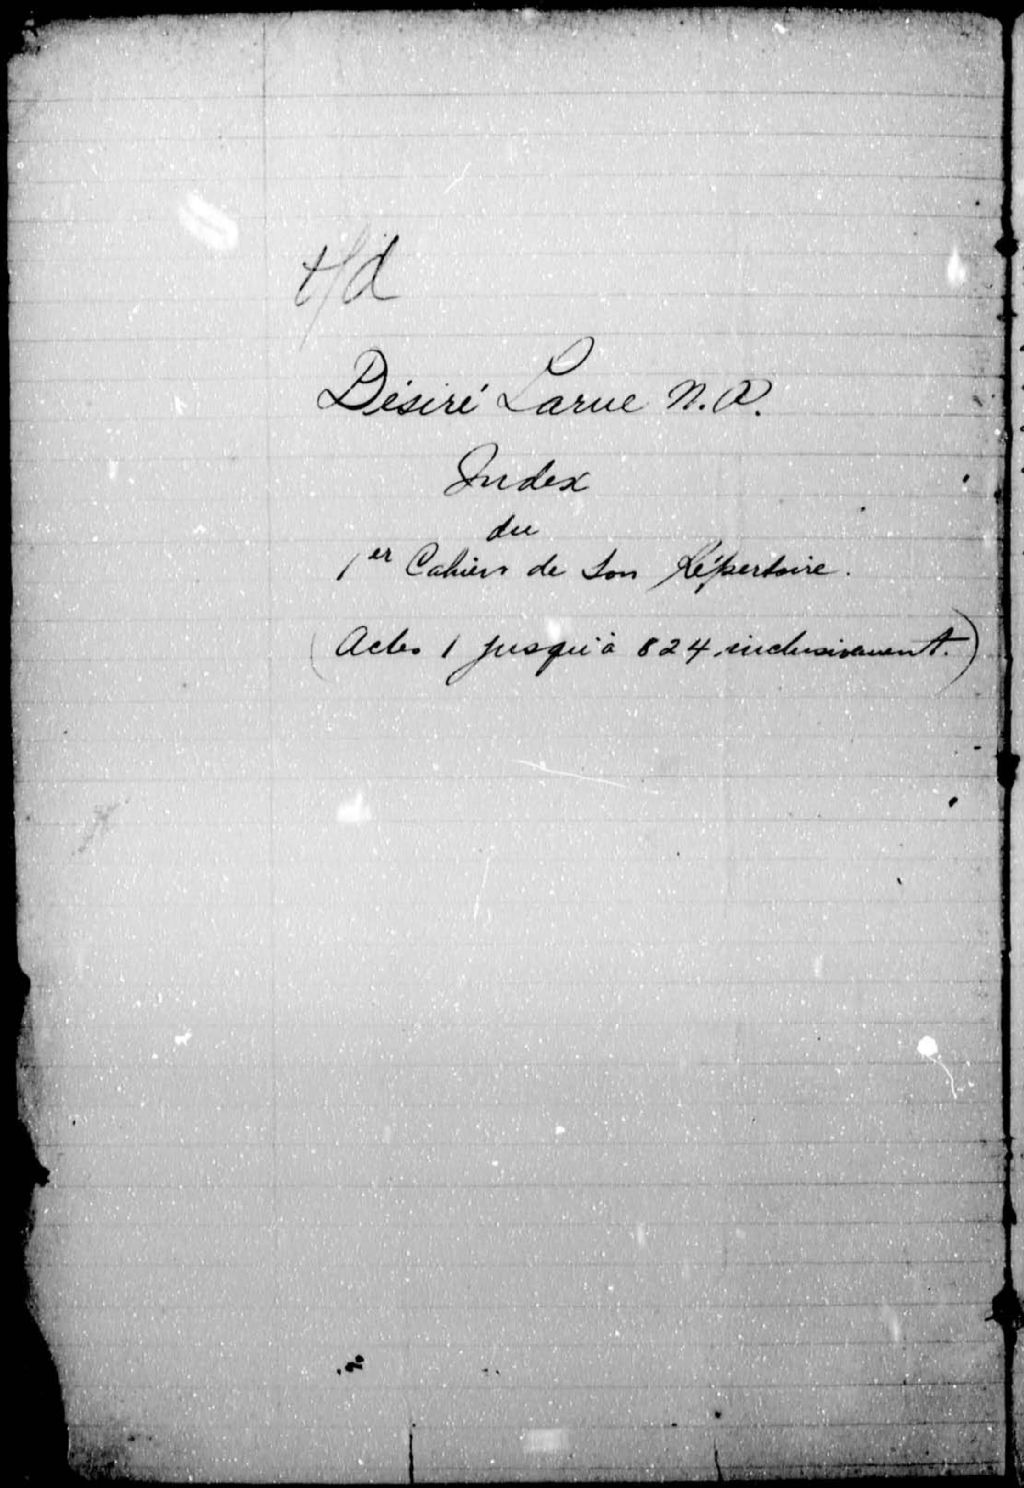 Désiré Larue N.P.
Index
du
1er Cahier de Son Répertoire.
(Actes 1 jusqu'à 824 inclusivement.)